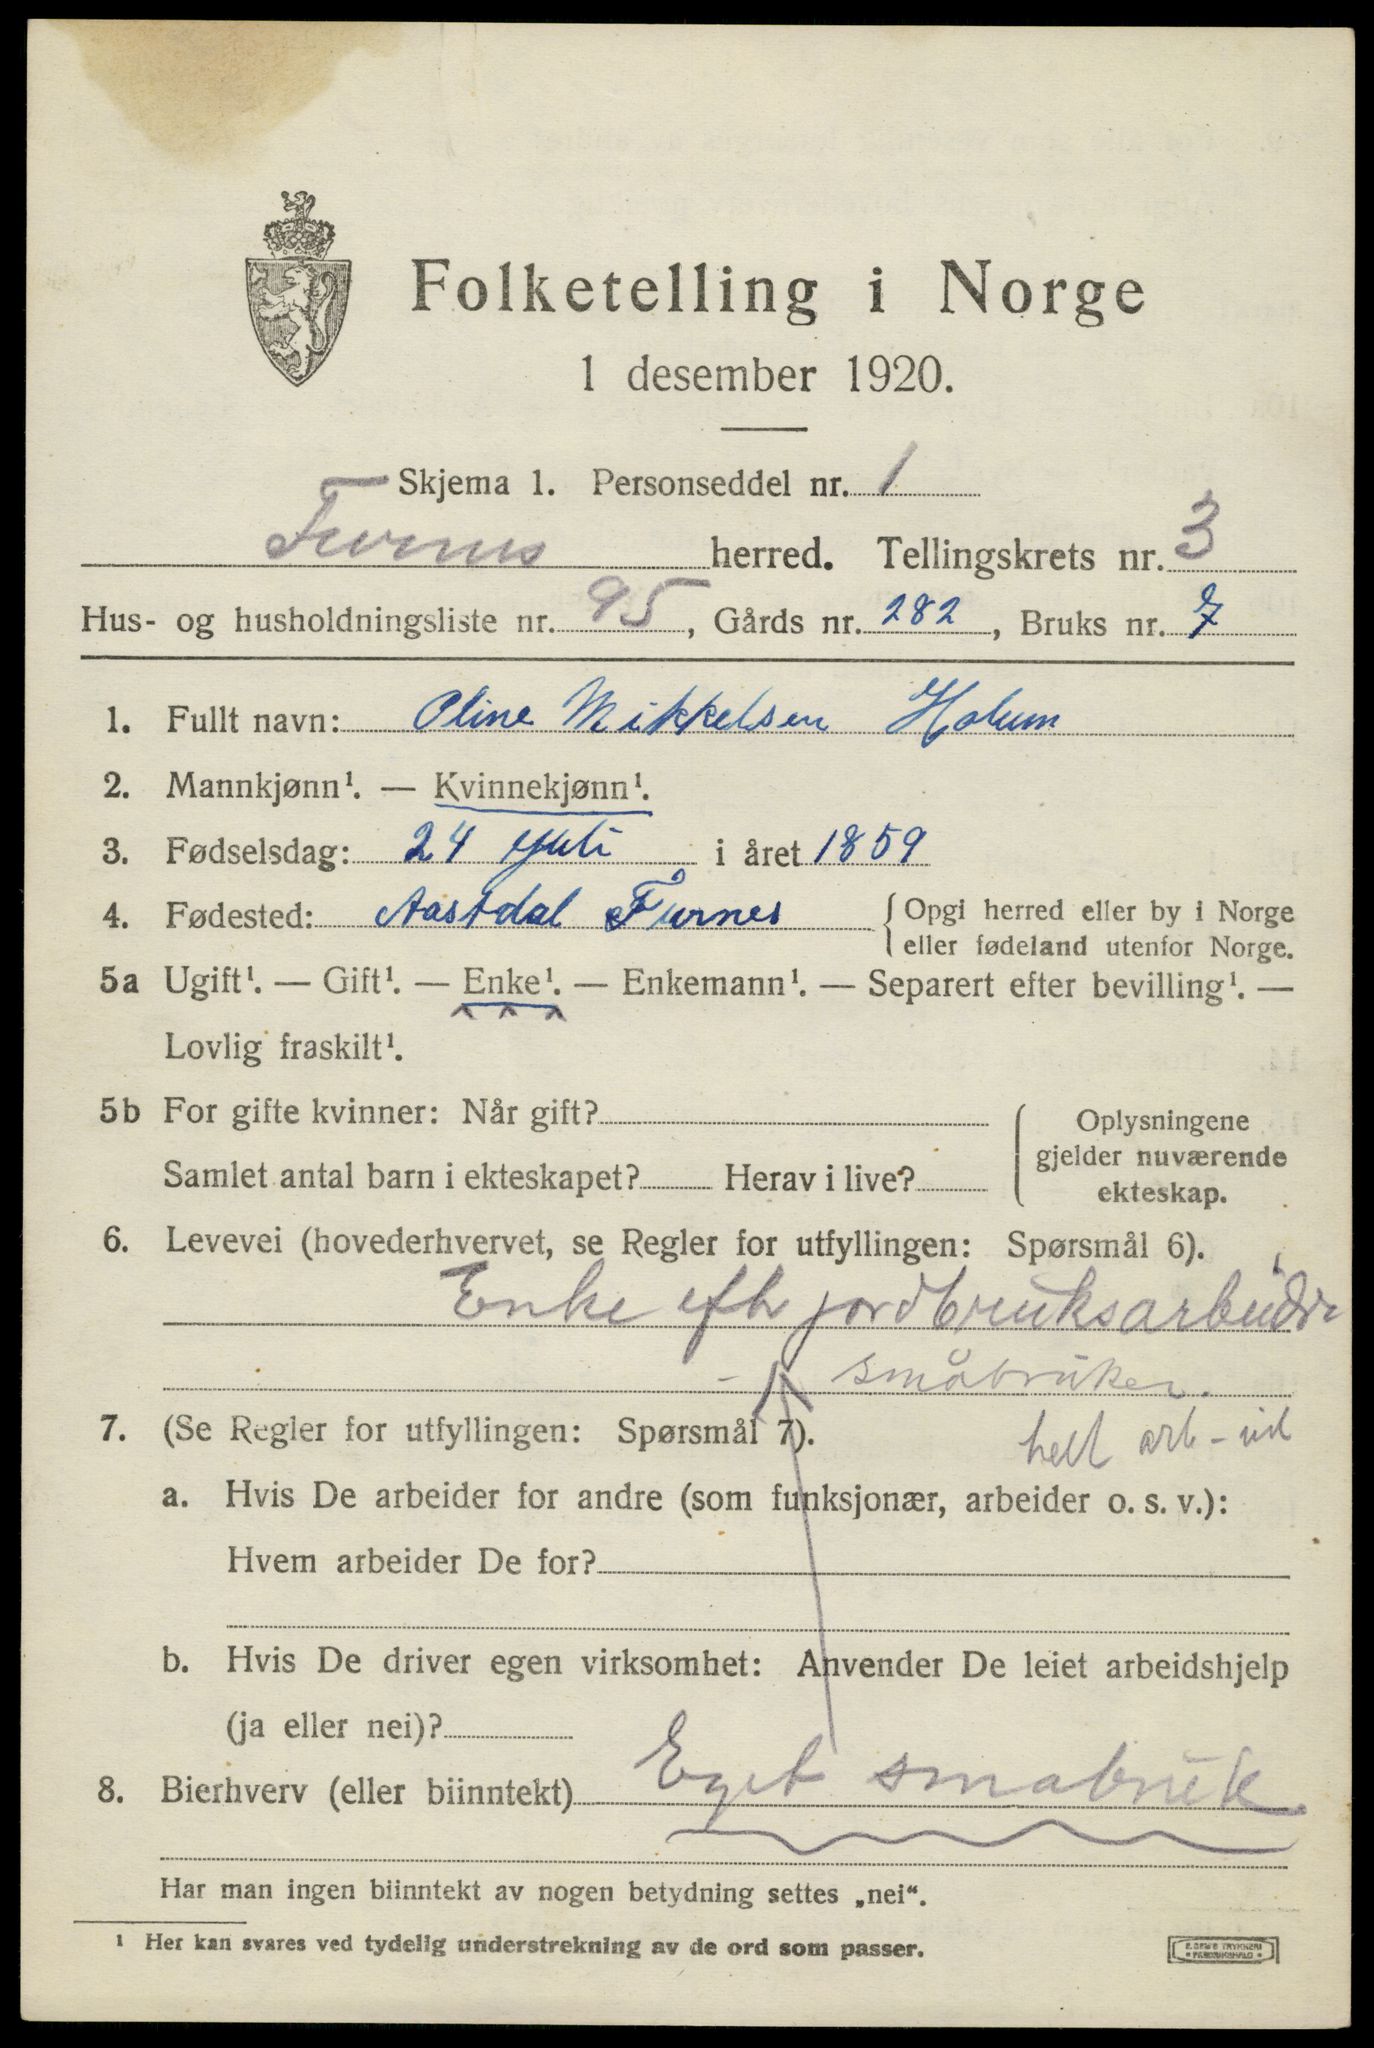 Folketelling i Norge
1 desember 1920.
Skjema 1. Personseddel nr. 1
Furnes herred. Tellingskrets nr. 3
Hus- og husholdningsliste nr. 95, Gårds nr. 282, Bruks nr. 7
1. Fullt navn: Oline Mikkelsen Holum
2. Mannkjønn¹. — Kvinnekjønn¹.
3. Fødselsdag: 24 Juli i året 1859
4. Fødested: Aastdal Furnes {Opgi herred eller by i Norge
eller fødeland utenfor Norge.
5a Ugift¹. — Gift¹. — Enke¹. — Enkemann¹. — Separert efter bevilling¹. —
Lovlig fraskilt¹.
5b For gifte kvinner: Når gift?
Samlet antal barn i ekteskapet? Herav i live?
Oplysningene
gjelder nuværende
ekteskap.
6. Levevei (hovederhvervet, se Regler for utfyllingen: Spørsmål 6).
Enke efth jordbruksarbeider
småbruker.
7. (Se Regler for utfyllingen: Spørsmål 7).
helt arb-
a. Hvis De arbeider for andre (som funksjonær, arbeider o. s. v.):
Hvem arbeider De for?
b. Hvis De driver egen virksomhet: Anvender De leiet arbeidshjelp
(ja eller nei)?
8. Bierhverv (eller biinntekt) Eget smabruk
Har man ingen biinntekt av nogen betydning settes „nei“.
¹ Her kan svares ved tydelig understrekning av de ord som passer.